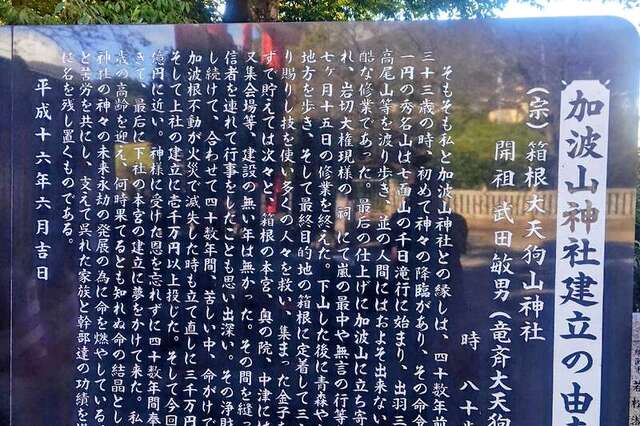 加波山神社建立の由
(宗) 箱根大天狗山神社
開祖 武田敏男 (竜斉大天狗
時 八十
そもそも私と加波山神社との縁しは、四十数年前
三十三歳の時、初めて神々の降臨があり、その命令
一円の秀名山は七面山の千日滝行に始まり、出羽三
高尾山等を渡り歩き、並の人間にはおよそ出来ない
酷な修業であった。最後の仕上げに加波山に立ち寄
れ、岩切大権現様の祠にて嵐の最中や無言の行等
七ヶ月十五日の修業を終えた。下山した後に青森や
地方を歩き、そして最終目的地の箱根に定着して三
り賜りし技を使い多くの人々を救い、集まった金子を
ずで貯えては次々と、箱根の本宮、奥の院、中津に
又集会場等、建設の無い年は無かった。その間を縫っ
信者を連れて行事をしたことも思い出深い。その浄財
し続けて、合わせて四十数年間、苦しい中、命がけで
加波根不動が火災で滅失した時も立て直しに三千万円
そして上社の建立に壱千万円以上投じた。そして今回
億円に近い。神様に受けた恩を忘れずに四十数年間奉
きて、最後に下社の本宮の建立に夢をかけて来た。私
歳の高齢を迎え、何時果てるとも知れぬ命の結晶とし
神社の神々の未来永劫の発展の為に命を燃やしている
と苦労を共にし、支えて呉れた家族と幹部達の功績を
姓名を残し置くものである。
平成十六年六月吉日